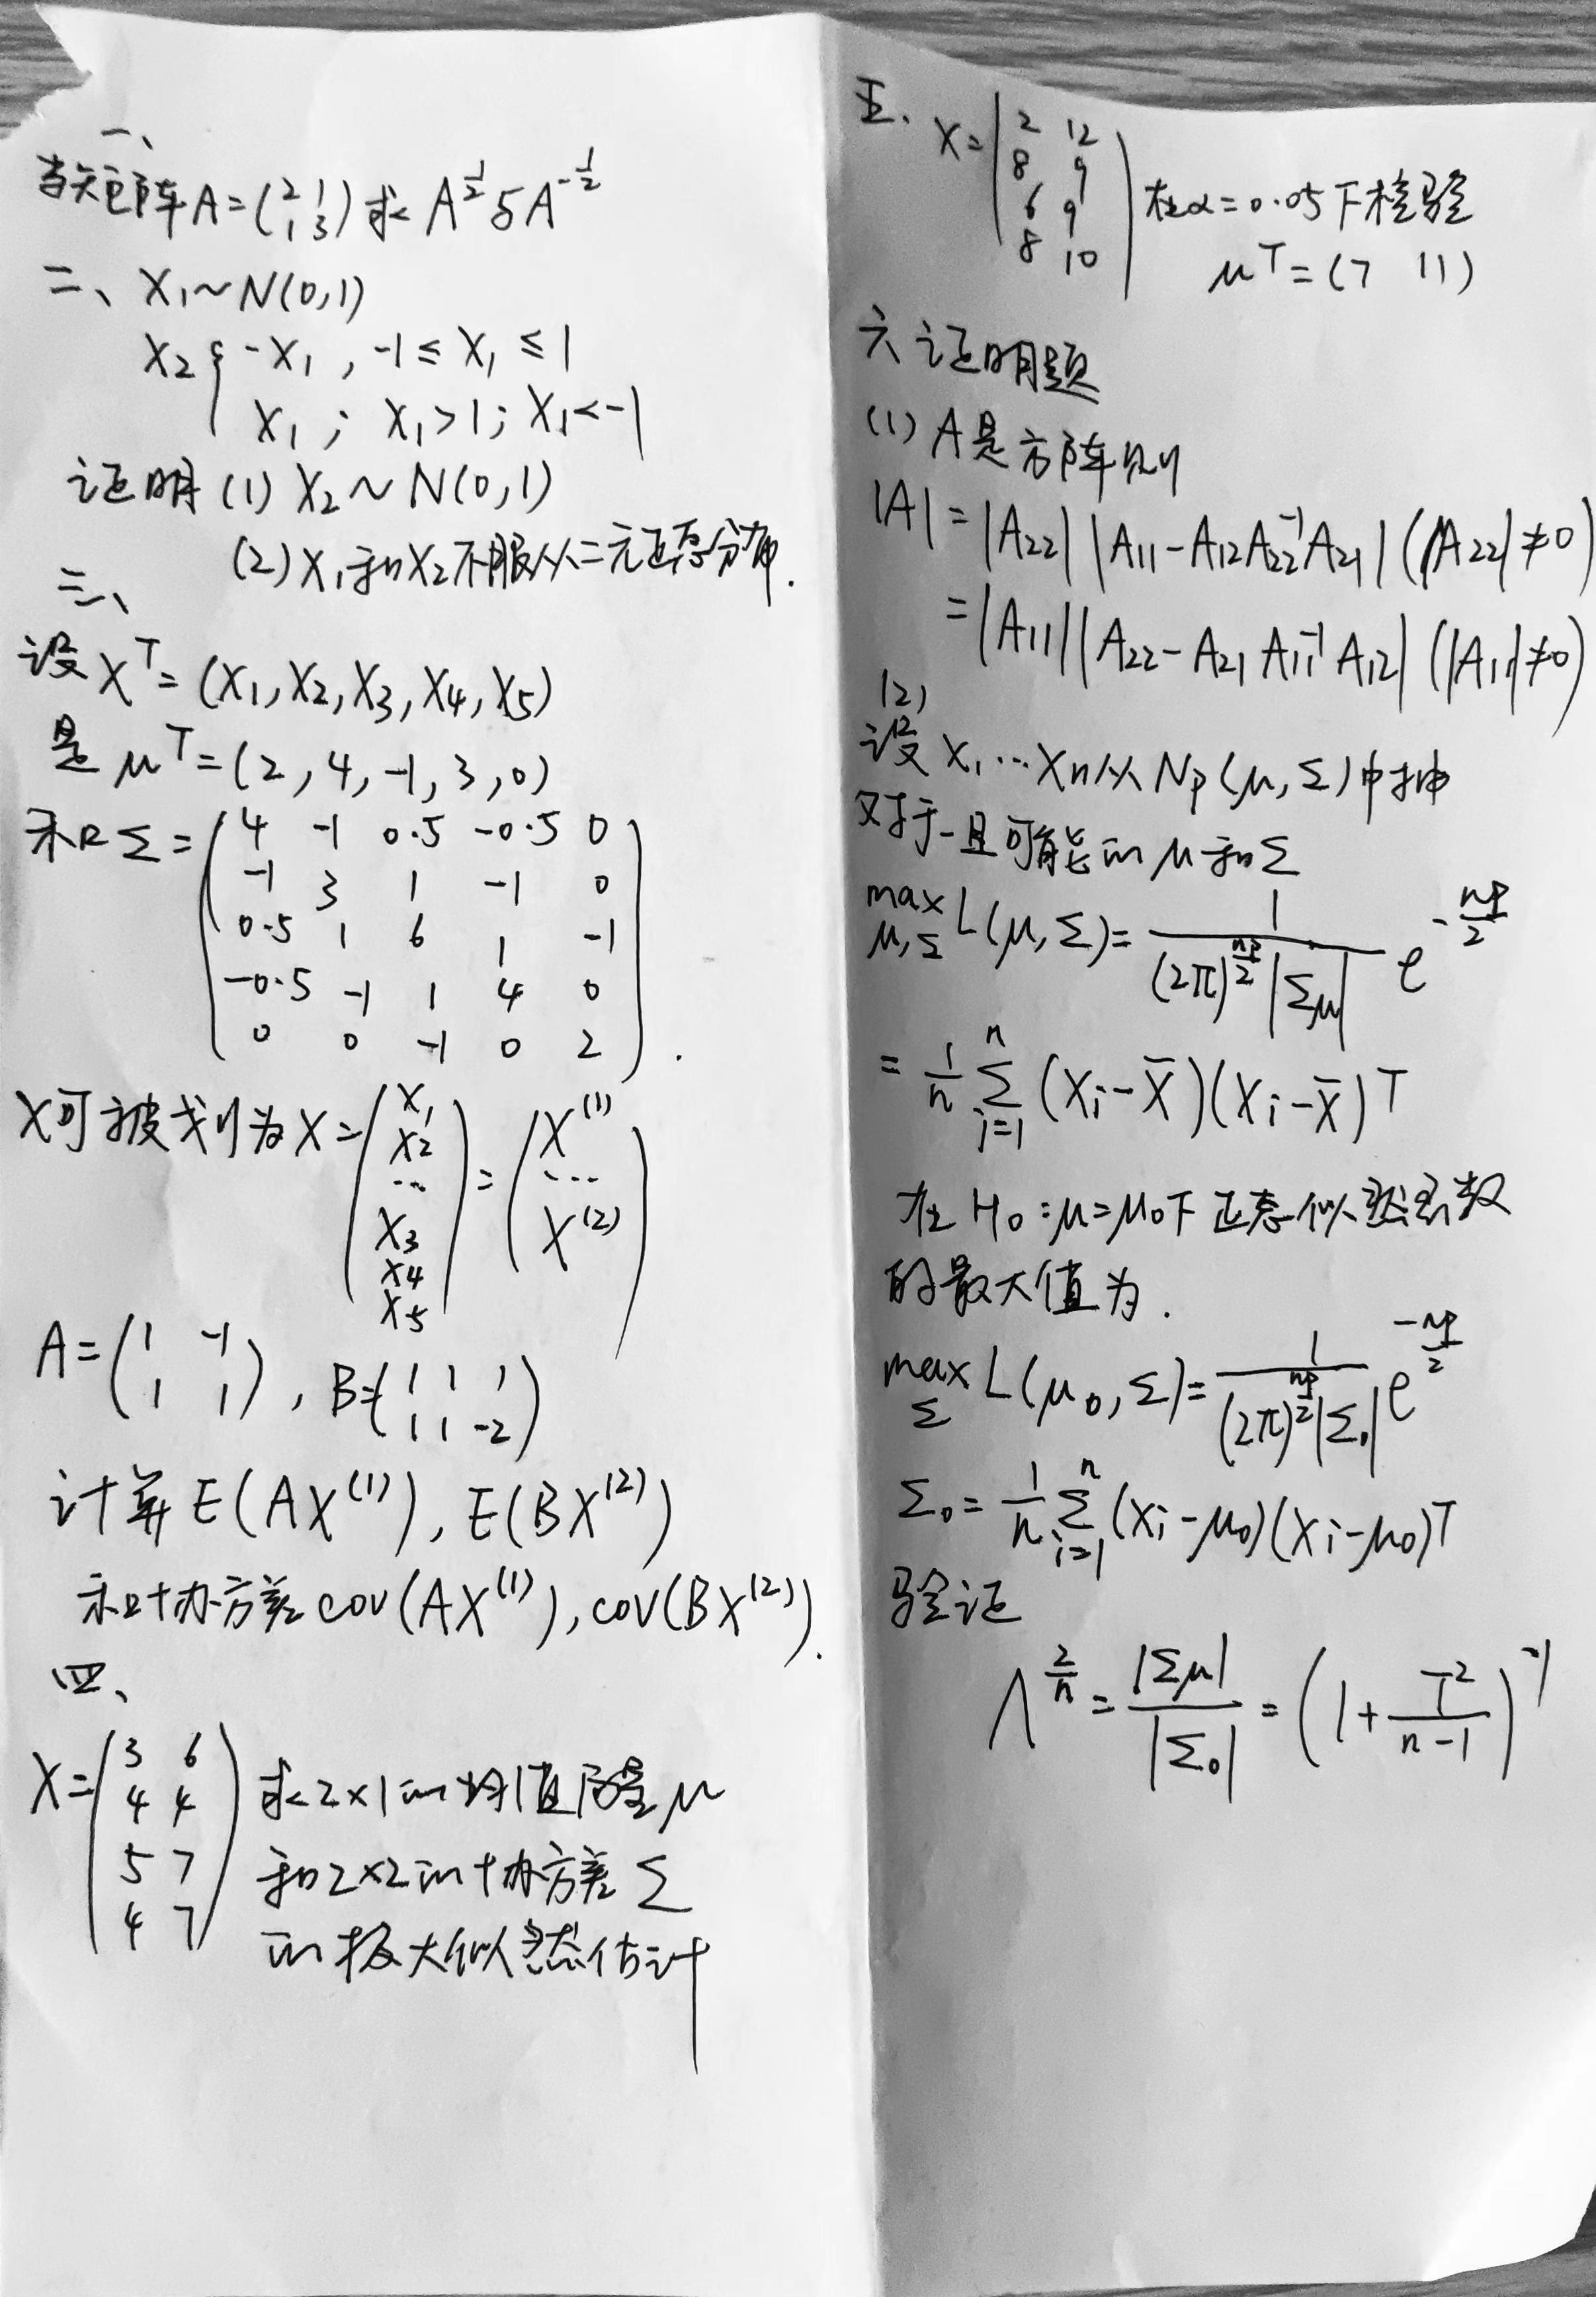 一、
当矩阵A=(2 1
1 3) 求 A^{1/2} 与 A^{-1/2}
二、X₁~N(0,1)
X₂ { -X₁ , -1≤X₁≤1
X₁ ; X₁>1; X₁<-1
证明 (1) X₂~N(0,1)
(2) X₁和X₂不服从二元正态分布.
三、
设 X^T=(X₁,X₂,X₃,X₄,X₅)
是 μ^T=(2,4,-1,3,0)
和 Σ=
4 -1 0.5 -0.5 0
-1 3 1 -1 0
0.5 1 6 1 -1
-0.5 -1 1 4 0
0 0 -1 0 2 .
X可被划为 X=(X₁ X₂ ... X₃ X₄ X₅)=(X^{(1)} ... X^{(2)})
A=(1 -1
1 1), B=(1 1 1
1 1 -2)
计算 E(AX^{(1)}), E(BX^{(2)})
和协方差 cov(AX^{(1)}), cov(BX^{(2)}).
四、
X=(3 6
4 4
5 7
4 7)
求2×1的均值向量μ
和2×2的协方差Σ
的极大似然估计
五、X=
2 12
8 9
6 9
8 10
在α=0.05下检验
μ^T=(7 11)
六 证明题
(1) A是方阵则
|A|=|A₂₂||A₁₁-A₁₂A₂₂^{-1}A₂₁| (|A₂₂|≠0)
=|A₁₁||A₂₂-A₂₁A₁₁^{-1}A₁₂| (|A₁₁|≠0)
(2)
设 X₁…Xn从Np(μ,Σ)中抽
对于一且可能的μ和Σ
max_{μ,Σ} L(μ,Σ)=1/((2π)^{np/2}|Σμ|) e^{-np/2}
=1/n Σ_{i=1}^{n} (Xi-X̄)(Xi-X̄)T
在 H₀:μ=μ₀下 正态似然函数
的最大值为.
max_Σ L(μ₀,Σ)=1/((2π)^{np/2}|Σ₀|) e^{-np/2}
Σ₀=1/n Σ_{i=1}^{n} (Xi-μ₀)(Xi-μ₀)T
验证
Λ^{2/n}=|Σμ|/|Σ₀|=(1+T²/(n-1))^{-1}